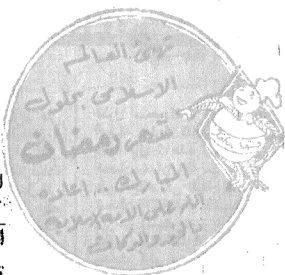 نهنئ العالم
الاسلامى بحلول
شهر رمضان
المبارك .. اعاده
الله على الأمة الاسلامية
بالخير والبركات